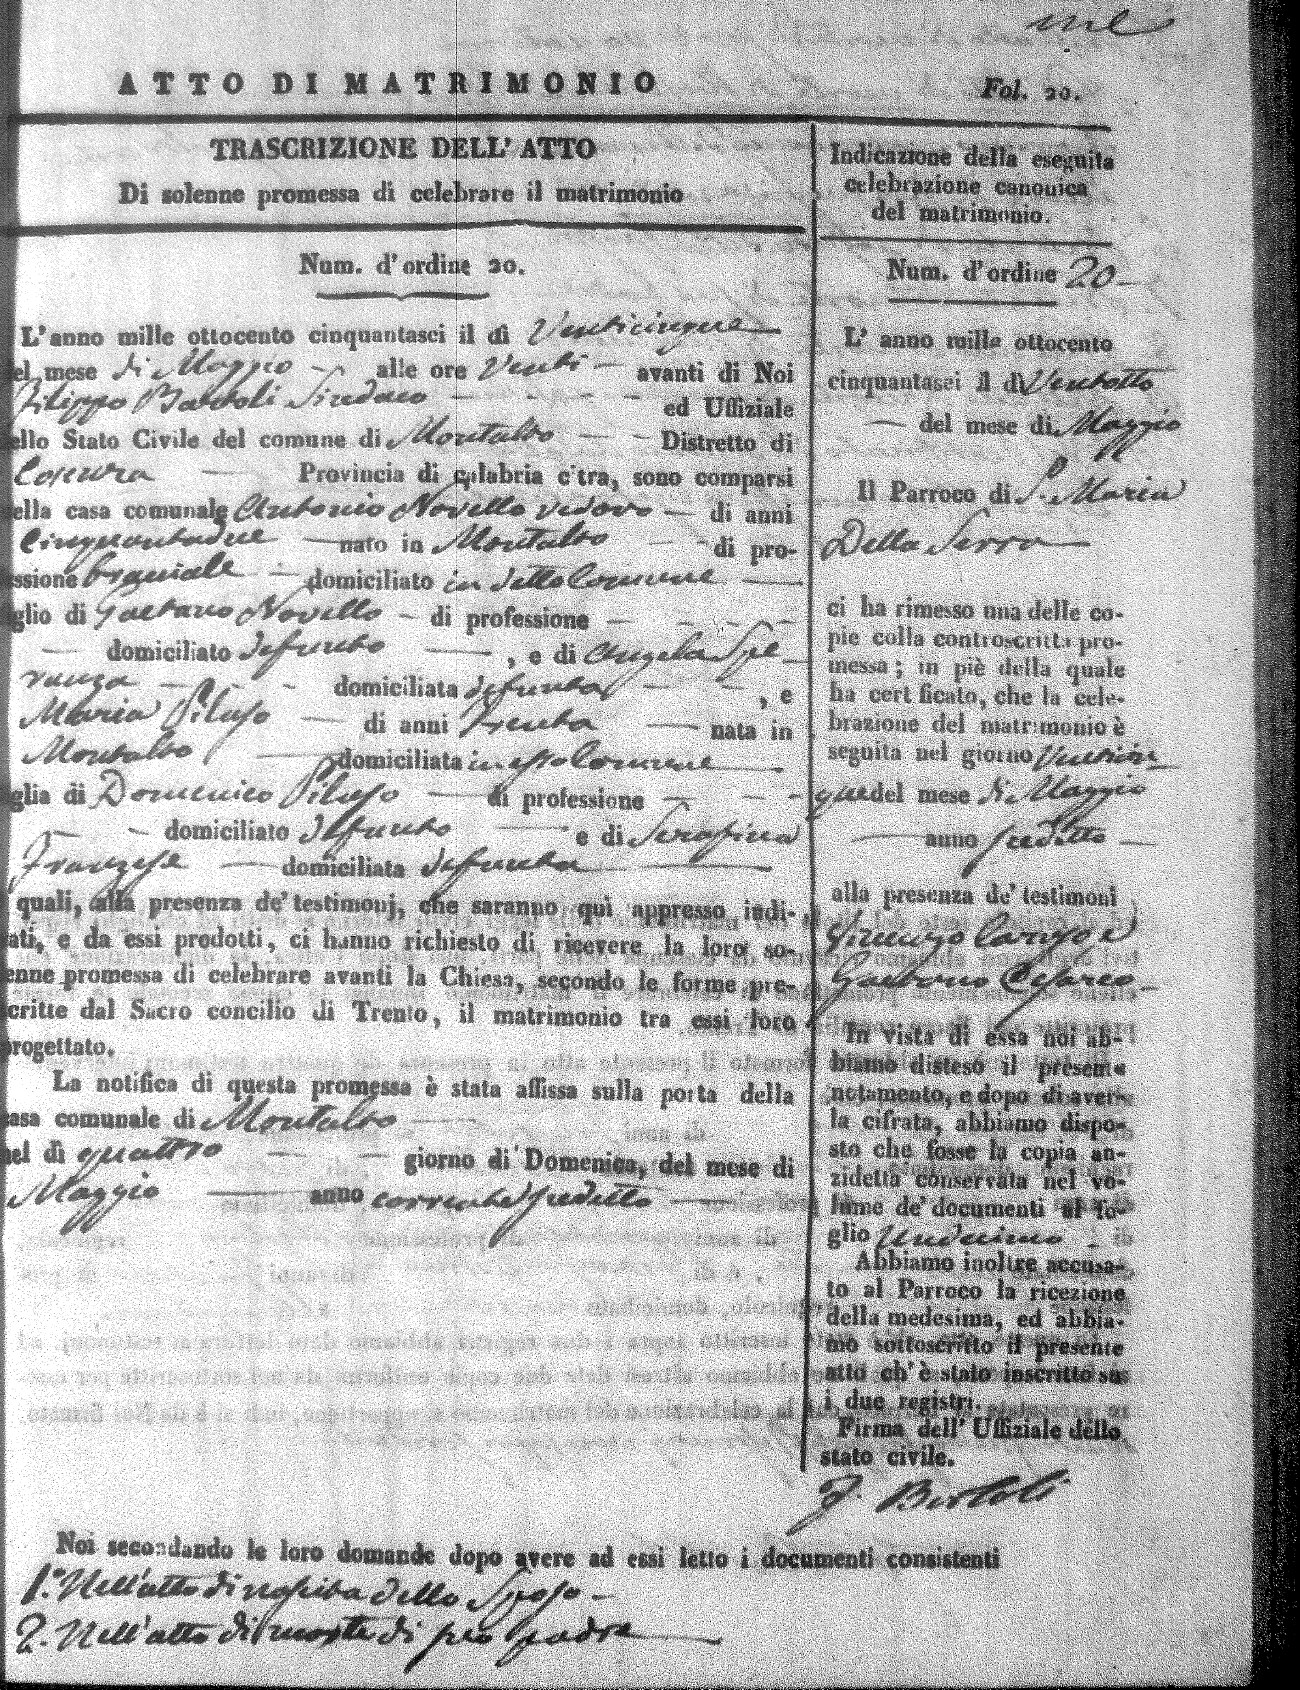 ATTO DI MATRIMONIO
Fol. 20.
TRASCRIZIONE DELL' ATTO
Di solenne promessa di celebrare il matrimonio
Num. d'ordine 20.
L'anno mille ottocento cinquantasei il di Venticinque
el mese di Maggio alle ore Venti avanti di Noi
Filippo Bartoli Sindaco ed Uffiziale
ello Stato Civile del comune di Montalto Distretto di
Cosenza Provincia di calabria citra, sono comparsi
ella casa comunale Antonio Novello vedovo di anni
Cinquantadue nato in Montalto di pro-
ssione braciale domiciliato in detto Comune
glio di Gaetano Novello di professione
domiciliato defunto, e di Angela Spe
ranza domiciliata defunta, e
Maria Piluso di anni trenta nata in
Montalto domiciliata in esso Comune
glia di Domenico Piluso di professione
domiciliato defunto e di Serafina
Franzese domiciliata defunta
quali, alla presenza de' testimonj, che saranno quì appresso indi-
ati, e da essi prodotti, ci hanno richiesto di ricevere la loro so-
enne promessa di celebrare avanti la Chiesa, secondo le forme pre-
critte dal Sacro concilio di Trento, il matrimonio tra essi loro
progettato.
La notifica di questa promessa è stata affissa sulla porta della
casa comunale di Montalto
nel dì quattro giorno di Domenica, del mese di
Maggio anno corrente predetto
Indicazione della eseguita
celebrazione canonica
del matrimonio.
Num. d'ordine 20
L' anno mille ottocento
cinquantasei il dì Ventotto
del mese di Maggio
Il Parroco di S. Maria
Della Serra
ci ha rimesso una delle co-
pie colla controscritta pro-
messa; in piè della quale
ha certificato, che la cele-
brazione del matrimonio è
seguita nel giorno Venticin
que del mese di Maggio
anno predetto
alla presenza de' testimoni
Vincenzo Caruso e
Gaetano Cesareo
In vista di essa noi ab-
biamo disteso il presente
notamento, e dopo di aver-
la cifrata, abbiamo dispo-
sto che fosse la copia an-
zidetta conservata nel vo-
lume de' documenti al fo-
glio Undecimo
Abbiamo inoltre accusa-
to al Parroco la ricezione
della medesima, ed abbia-
mo sottoscritto il presente
atto ch' è stato inscritto su
i due registri.
Firma dell' Uffiziale dello
stato civile.
F. Bartoli
Noi secondando le loro domande dopo avere ad essi letto i documenti consistenti
1.° Nell'atto di nascita dello Sposo
2. Nell'atto di morte di suo padre